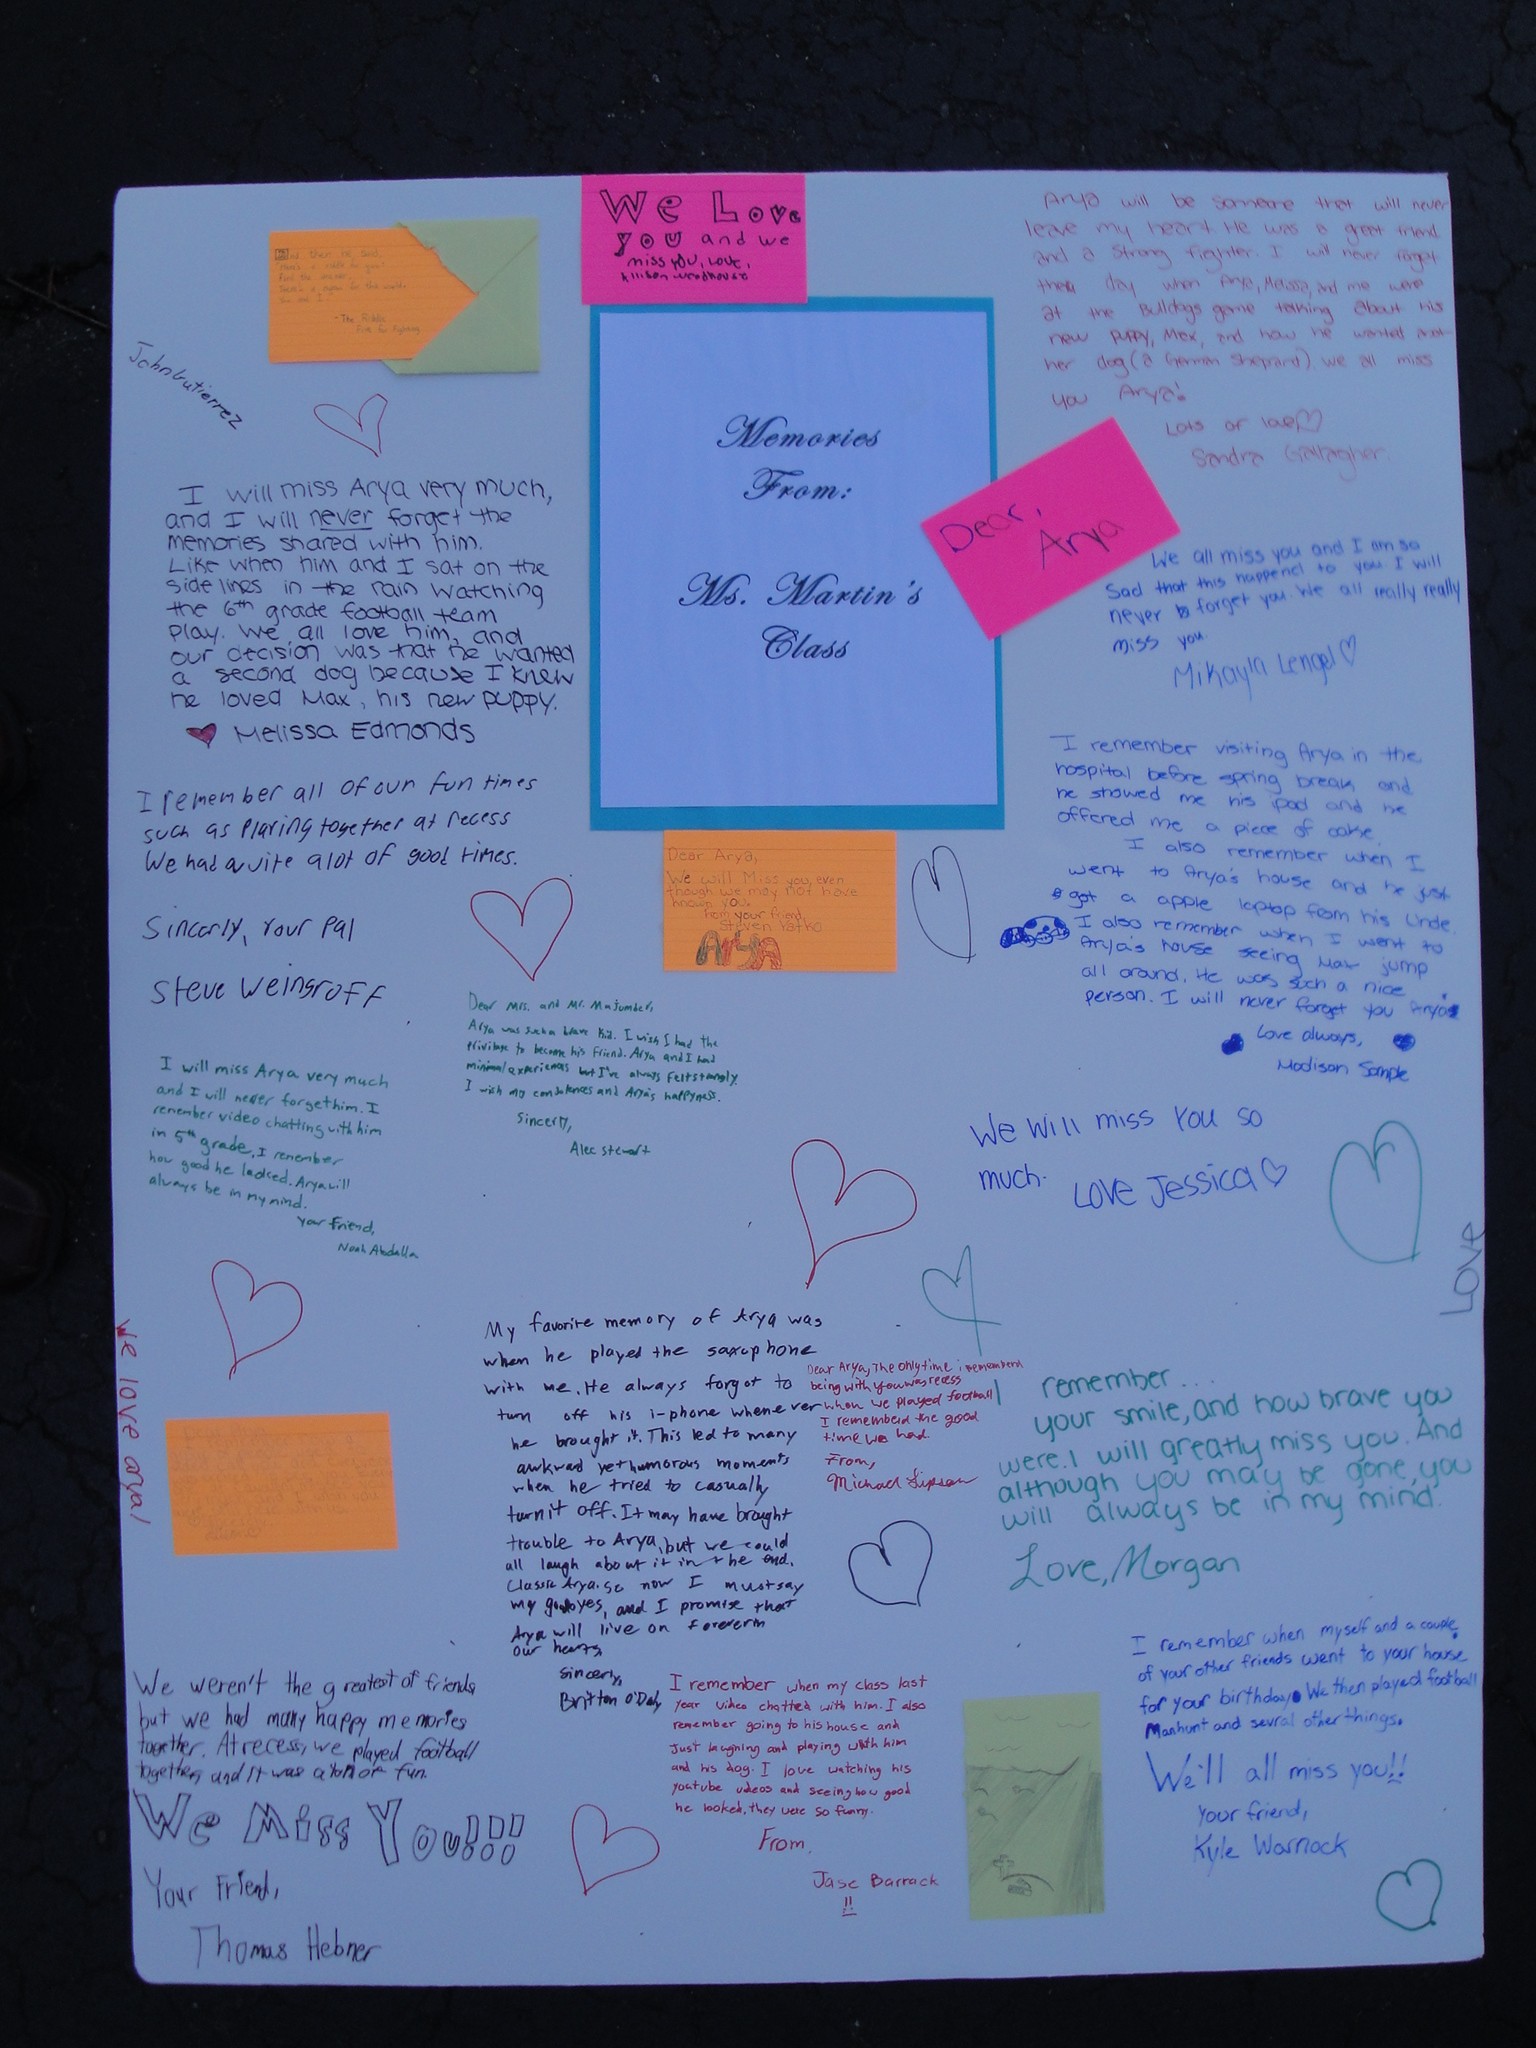 We Love
you and we
miss you, Love,
And then he said,
"Here's a riddle for you"
Find the answer
- The Riddle
Five for Fighting
John Gutierrez
Memories
From:
Ms. Martin's
Class
Dear,
Arya
Arya will be someone that will never
leave my heart. He was a great friend
and a strong fighter. I will never forget
the day when Arya, Melissa, and me were
at the Bulldogs game talking about his
new puppy, Max, and how he wanted anot-
her dog (a German Sheprard). we all miss
you Arya!
Lots of love♡
Sandra Gallagher
I will miss Arya very much,
and I will never forget the
memories shared with him.
Like when him and I sat on the
side lines in the rain watching
the 6th grade football team
play. We all love him, and
our decision was that he wanted
a second dog because I knew
he loved Max, his new puppy.
♥ Melissa Edmonds
We all miss you and I am so
Sad that this happened to you I will
never forget you. We all really really
miss you.
Mikayla Lengel♡
I remember visiting Arya in the
hospital before spring break, and
he showed me his ipod and he
offered me a piece of cake.
I also remember when I
went to Arya's house and he just
got a apple laptop from his Uncle.
I also remember when I went to
Arya's house seeing Max jump
all around. He was such a nice
person. I will never forget you Arya
Love always,
Madison Sample
I remember all of our fun times
such as Playing together at recess
We had quite a lot of good times.
Sincerly, Your Pal
Steve Weingroff
Dear Arya,
We will Miss you, even
though we may not have
known you.
from your friend,
Steven Yatko
Arya
Dear Mrs. and Mr. Majumder,
Arya was such a brave kid. I wish I had the
privilage to become his friend. Arya and I had
minimal experiences but I've always felt strongly.
I wish my condolences and Arya's happyness.
Sincerly,
Alec Stewart
I will miss Arya very much
and I will never forget him. I
remember video chatting with him
in 5th grade, I remember
how good he looked. Arya will
always be in my mind.
Your friend,
Noah Abdalla
We will miss you so
much. Love Jessica♡
LOVE
We love arya!
My favorite memory of Arya was
when he played the saxophone
with me. He always forgot to
turn off his i-phone whenever
he brought it. This led to many
awkward yet humorous moments
when he tried to casually
turn it off. It may have brought
trouble to Arya, but we could
all laugh about it in the end.
Classic Arya. So now I must say
my goodbyes, and I promise that
Arya will live on forever in
our hearts.
Sincerly,
Britton O'Daly
Dear Arya, The only time i rememberd
being with you was recess
when we played football
I rememberd the good
time we had.
From,
Michael Lipson
I remember...
your smile, and how brave you
were. I will greatly miss you. And
although you may be gone, you
will always be in my mind.
Love, Morgan
We weren't the greatest of friends
but we had many happy memories
together. At recess, we played football
together, and it was a ton of fun.
We Miss You!!!
Your Friend,
Thomas Hebner
I remember when my class last
year video chatted with him. I also
remember going to his house and
Just laughing and playing with him
and his dog. I love watching his
youtube videos and seeing how good
he looked, they were so funny.
From,
Jase Barrack
!!
I remember when myself and a couple
of your other friends went to your house
for your birthday. We then played football
Manhunt and sevral other things.
We'll all miss you!!
Your friend,
Kyle Warnock